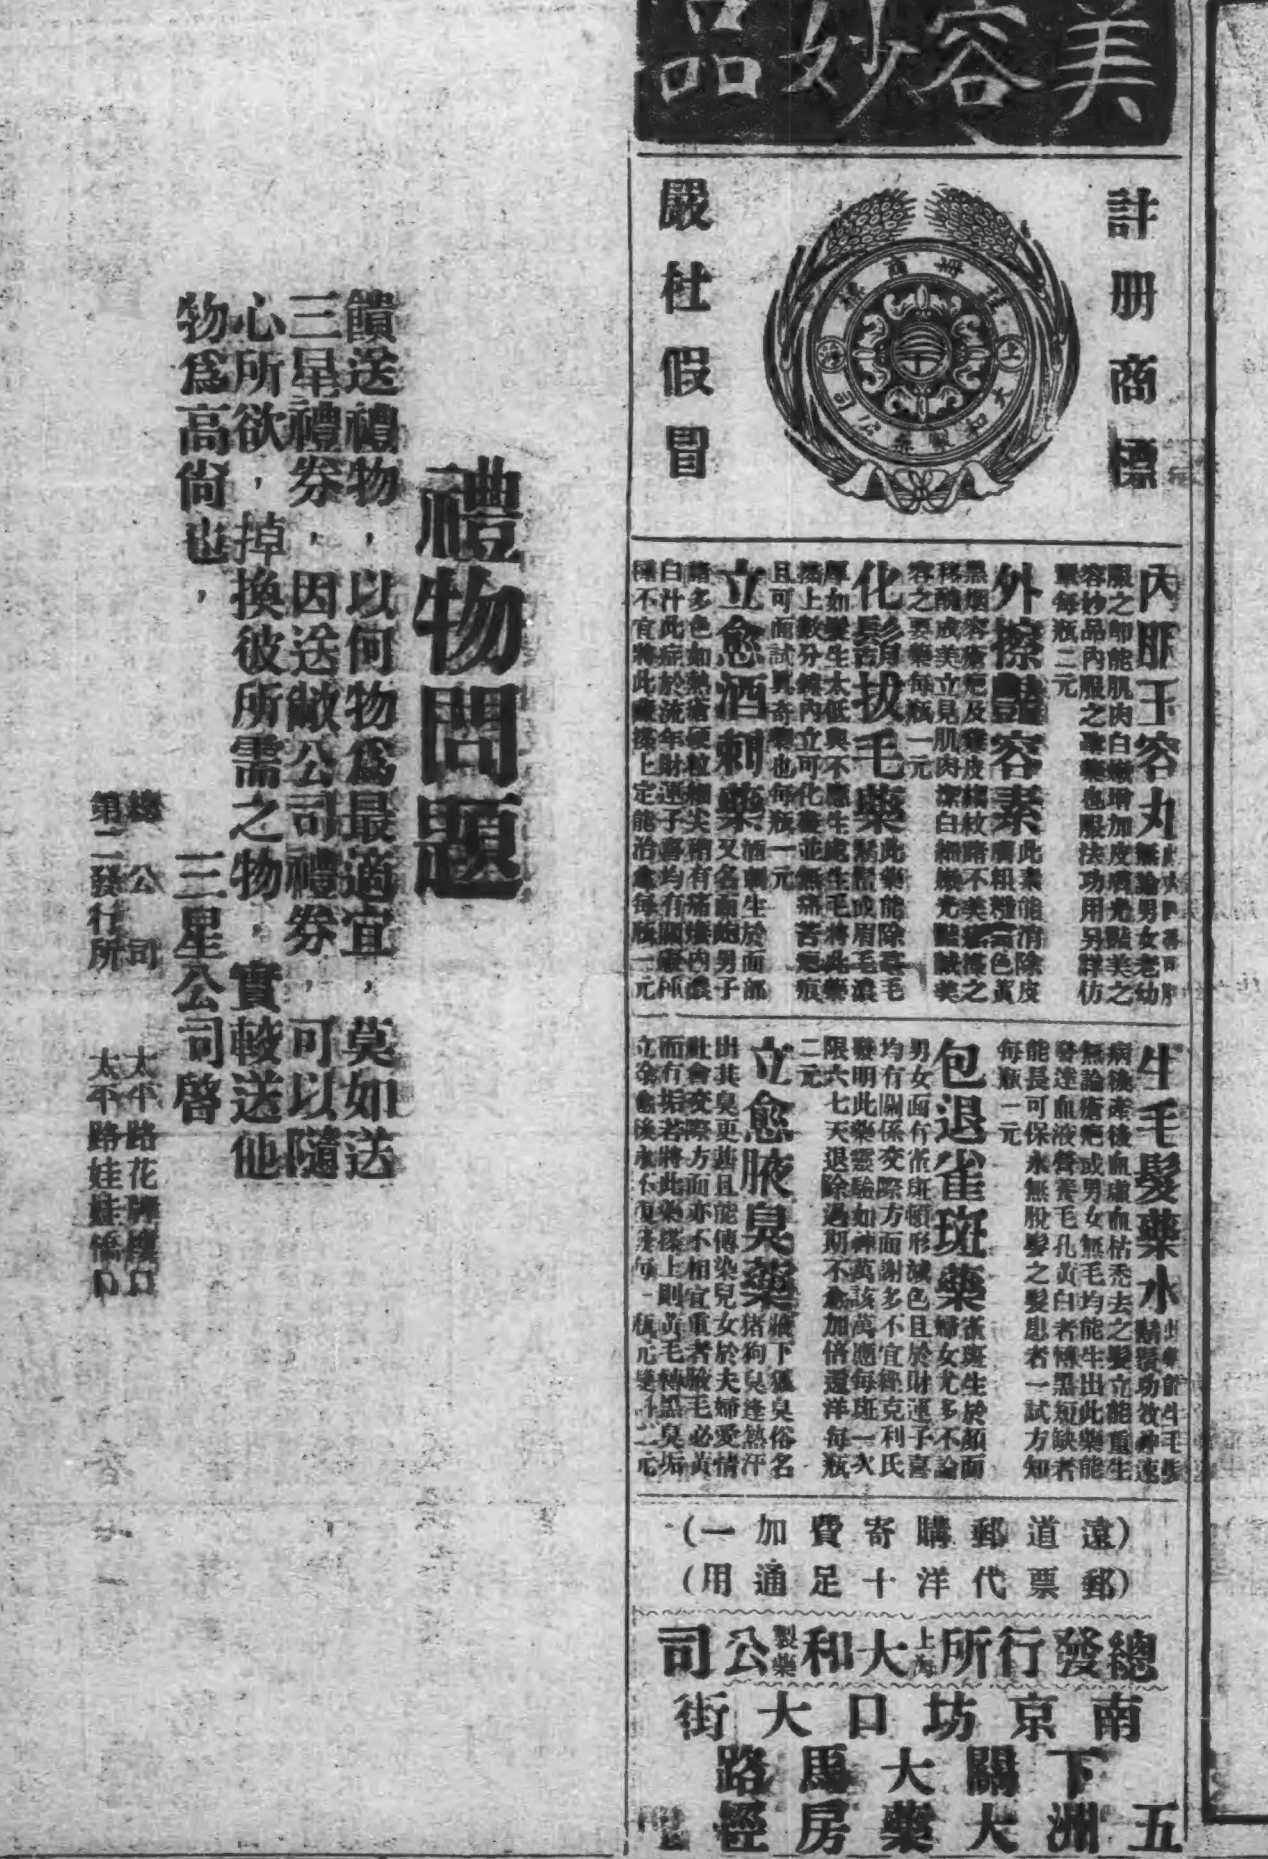 美容妙品
計册商標
嚴杜假冒
註冊商標
上海
大和製藥公司
內服玉容丸
無論男女老幼
服之即能肌肉白嫩增加皮膚光豔美之
容妙品內服之聖藥也服法功用另詳仿
單每瓶二元
外擦豔容素
此素能消除皮
膚粗糙面色黃
黑烟容瘡疤及雞皮縐紋諸不美處擦之
移醜成美立見肌肉潔白細嫩光豔誠美
容之要藥每瓶一元
化鬍拔毛藥
此藥能除毫毛
鬍鬚或眉毛濃
厚如髮生太低與不應生處生毛將此藥
搽上數分鐘內立可化盡並無痛苦疤痕
且可面試真奇藥也每瓶一元
立愈酒刺藥
酒刺生於面部
又名面皰男子
諸多色如熱瘡硬粒細尖稍有痛癢內濃
白汁此症於流年財運子喜均有關
不宜將此藥搽上定能治愈每瓶一元
生毛髮藥水
此藥能生毛髮
鬍鬚功效神速
病後產後血虛血枯禿去之髮立能重生
無論瘡疤或男女無毛均能生出此藥能
發達血液營養毛孔黃白者轉黑短缺者
能長可保永無脫髮之髮患者一試方知
每瓶一元
包退雀斑藥
雀斑生於顏面
婦女尤多不論
男女面有雀斑頓形減色且於財運子喜
均有關係交際方面謝多不宜經克利氏
發明此藥靈驗如神萬該萬應每班一次
限六七天退除過期不愈加倍還洋每瓶
二元
立愈腋臭藥
腋下狐臭俗名
猪狗臭逢熱汗
出其臭更甚且能傳染兒女於夫婦愛情
社會交際方面亦不相宜重者腋毛必黃
而有垢若將此藥搽上則黃毛轉黑臭垢
立除愈後永不復發每瓶一元雙料二元
(遠道郵購寄費加一)
(郵票代洋十足通用)
總發行所上海大和製藥公司
南京坊口大街
下關大馬路
五洲大藥房經
禮物問題
饋送禮物，以何物爲最適宜，莫如送
三星禮券，因送敝公司禮券，可以隨
心所欲，掉換彼所需之物，實較送他
物爲高尙也，
三星公司啓
總公司 太平路花牌樓口
第二發行所 太平路娃娃橋口